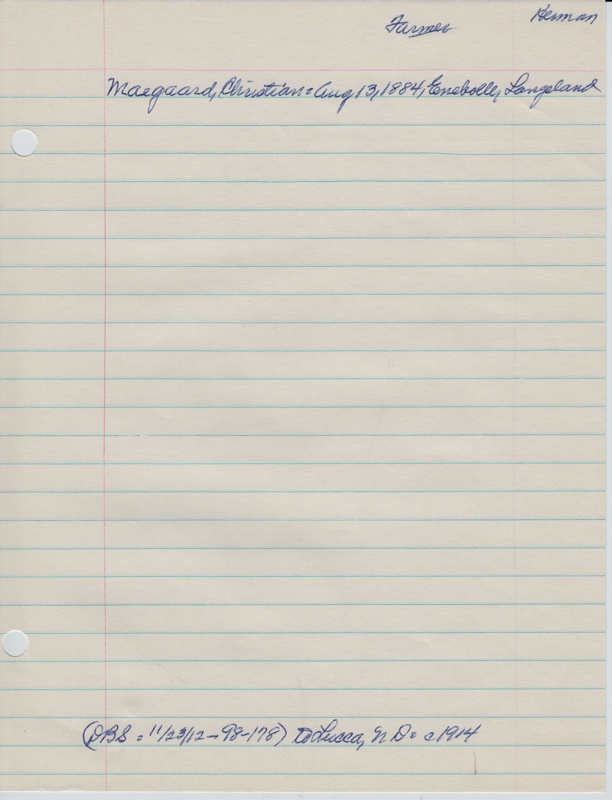 Herman
Farmer
Maegaard, Christian = Aug 13, 1884, Enebolle, Langeland
(DBS = 11/23/12 - 98-178) To Lucca, N D = c1914